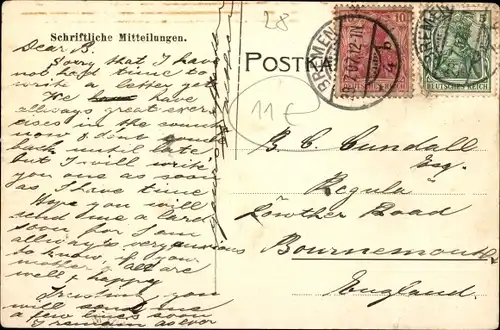 28
Schriftliche Mitteilungen.
POSTKA
BREMEN
7.07.12-1N
10
5
DEUTSCHES REICH
DEUTSCHES REICH
BREMEN
11 €
Dear B.
Sorry that I have
not had time to
write a letter yet.
We have
always great exer
cise in the
now & don't
back until late
but I will write
you one as soon
as I have time
Hope you will
send me a card
soon for I am
allways very anxious
to know if your
mother & all are
well & happy
Trusting you
will send me a
few lines soon
I remain as ever
B. C. Cundall
Esq.
Regula
Lowther Road
Bournemouth
England.